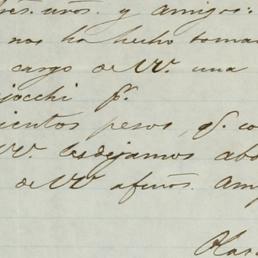 res. nros. y amigos:
nos ha hecho toma
cargo de VV. una
jocchi pr.
cientos pesos, q. co
VV. les dejamos abo
de VV afmos. Am